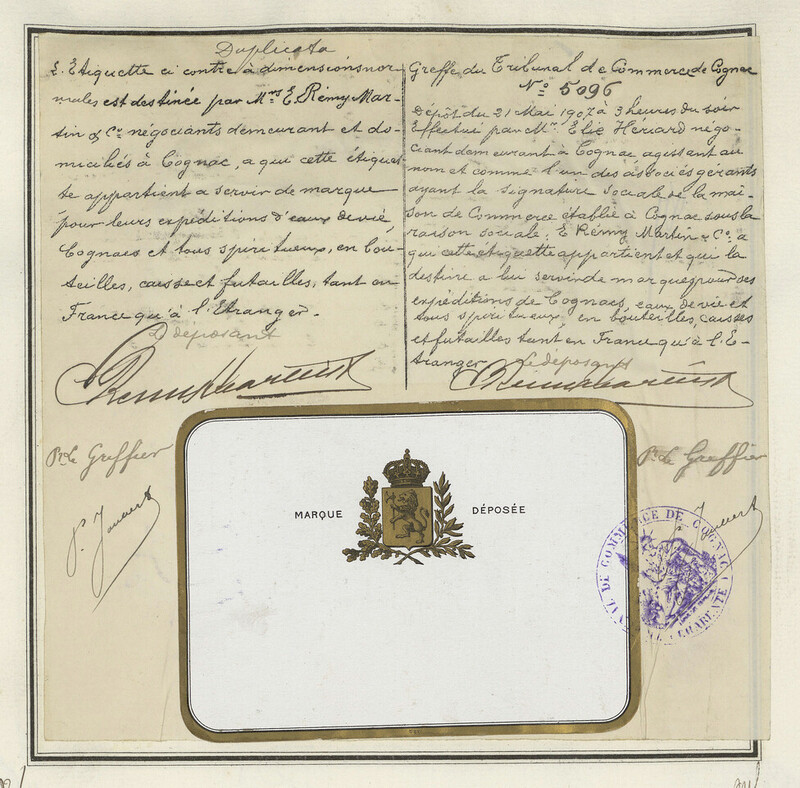 Duplicata
L'Etiquette ci contre à dimensions nor-
males est destinée par Mrs E. Rémy Mar-
tin & Cie négociants demeurant et do-
miciliés à Cognac, a qui cette étiquet-
te appartient a servir de marque
pour leurs expéditions d'eaux de vie,
Cognacs et tous spiritueux, en bou-
teilles, caisses et futailles, tant en
France qu'à l'Etranger.
Le déposant
E Remy Martin & Co
Greffe du Tribunal de Commerce de Cognac
No 5096
Dépôt du 21 Mai 1907 à 3 heures du soir
Effectué par Mr Elie Hériard négo-
ciant demeurant à Cognac, agissant au
nom et comme l'un des associés gérants
ayant la signature sociale de la mai-
son de Commerce établie à Cognac sous la
raison sociale: E Rémy Martin & Co. a
qui cette étiquette appartient et qui la
destine a lui servir de marque pour ses
expéditions de Cognacs, eaux de vie et
tous spiritueux, en bouteilles, caisses
et futailles tant en France qu'à l'E-
tranger
Le déposant
E Remy Martin & Co
Pr Le Greffier
Pr Le Greffier
MARQUE DÉPOSÉE
DE COMMERCE DE COGNAC
CHARENTE